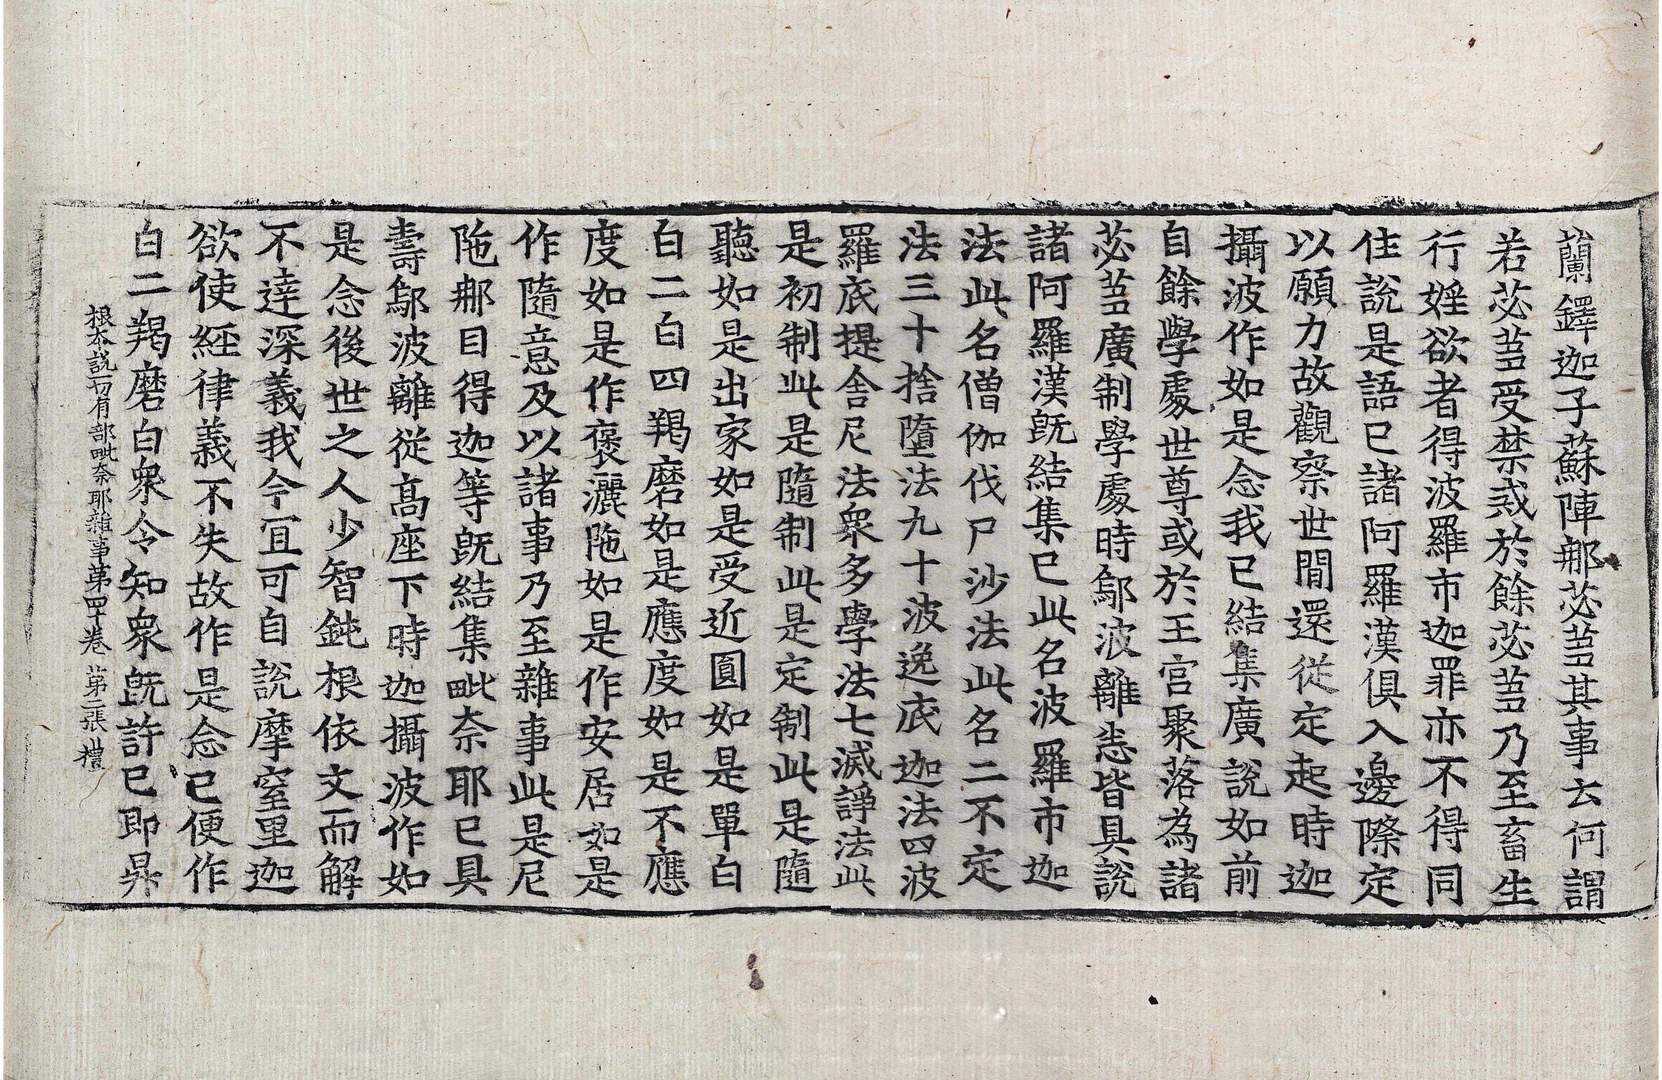 蘭鐸迦子蘇陣那苾芻其事云何謂
若苾芻受禁戒於餘苾芻乃至畜生
行婬欲者得波羅市迦罪亦不得同
住說是語已諸阿羅漢俱入邊際定
以願力故觀察世閒還從定起時迦
攝波作如是念我已結集廣說如前
自餘學處世尊或於王宮聚落為諸
苾芻廣制學處時鄔波離悉皆具說
諸阿羅漢旣結集已此名波羅市迦
法此名僧伽伐尸沙法此名二不定
法三十捨墮法九十波逸底迦法四波
羅底提舍尼法衆多學法七滅諍法此
是初制此是隨制此是定制此是隨
聽如是出家如是受近圓如是單白
白二白四羯磨如是應度如是不應
度如是作褒灑陁如是作安居如是
作隨意及以諸事乃至雜事此是尼
陁那目得迦等旣結集毗奈耶已具
壽鄔波離從高座下時迦攝波作如
是念後世之人少智鈍根依文而解
不達深義我今宜可自說摩窒里迦
欲使經律義不失故作是念已便作
白二羯磨白衆令知衆旣許已即昇
根本說一切有部毗奈耶雜事第四十卷 第二張 禮